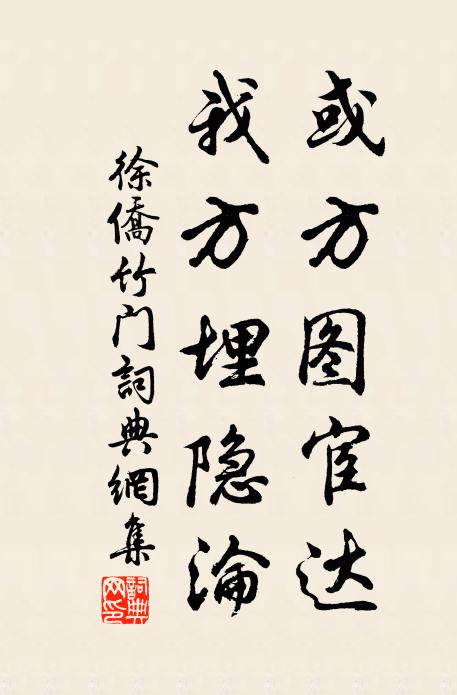 或方图宦达
我方埋隐淪
徐僑竹门詞典網集
詞典网印